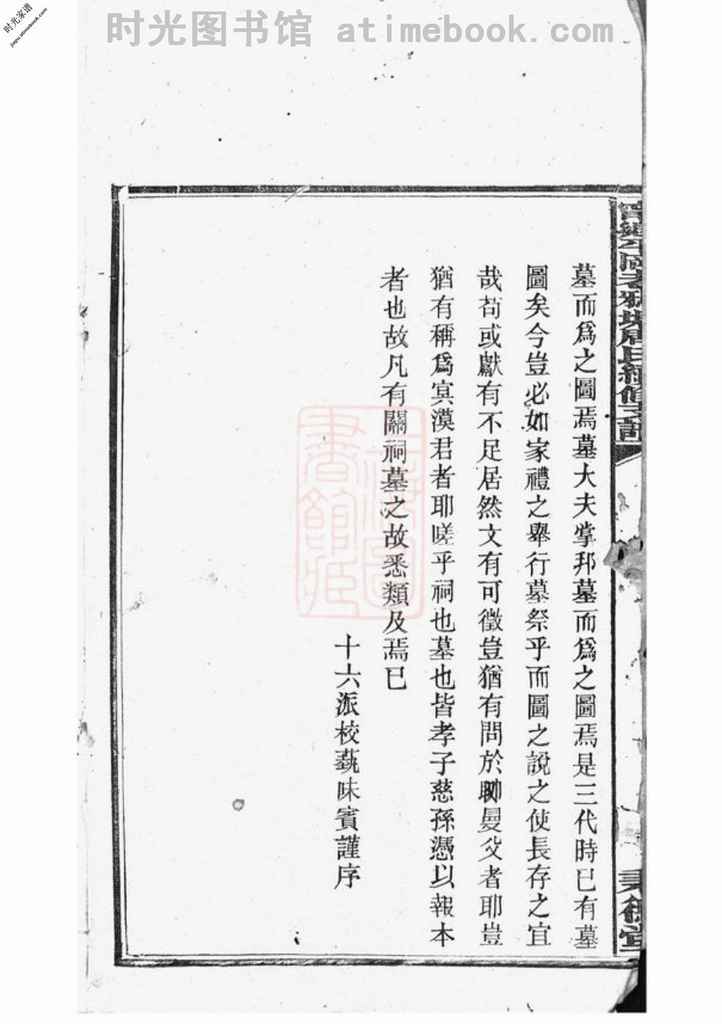 时光图书馆 atimebook.com
时光家谱
jiapu.atimebook.com
墓而爲之圖焉墓大夫掌邦墓而爲之圖焉是三代時已有墓
圖矣今豈必如家禮之舉行墓祭乎而圖之說之使長存之宜
哉苟或獻有不足居然文有可徵豈猶有問於郰曼父者耶豈
猶有稱爲冥漠君者耶嗟乎祠也墓也皆孝子慈孫憑以報本
者也故凡有關祠墓之故悉類及焉已
十六派校蓺味賓謹序